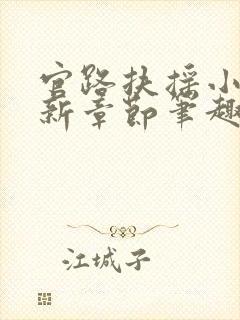 官路扶摇小
新章节笔趣
江城子